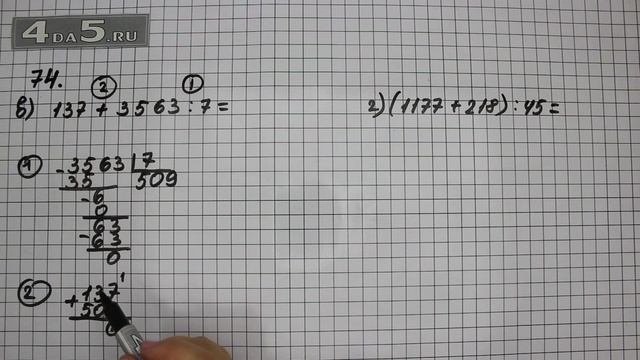 4DA5.RU
74.
② ①
в) 137 + 3563 : 7 =
г) (1177 + 218) : 45 =
① - 3563 | 7
35 509
- 6
0
- 63
63
0
② + 137 1
50